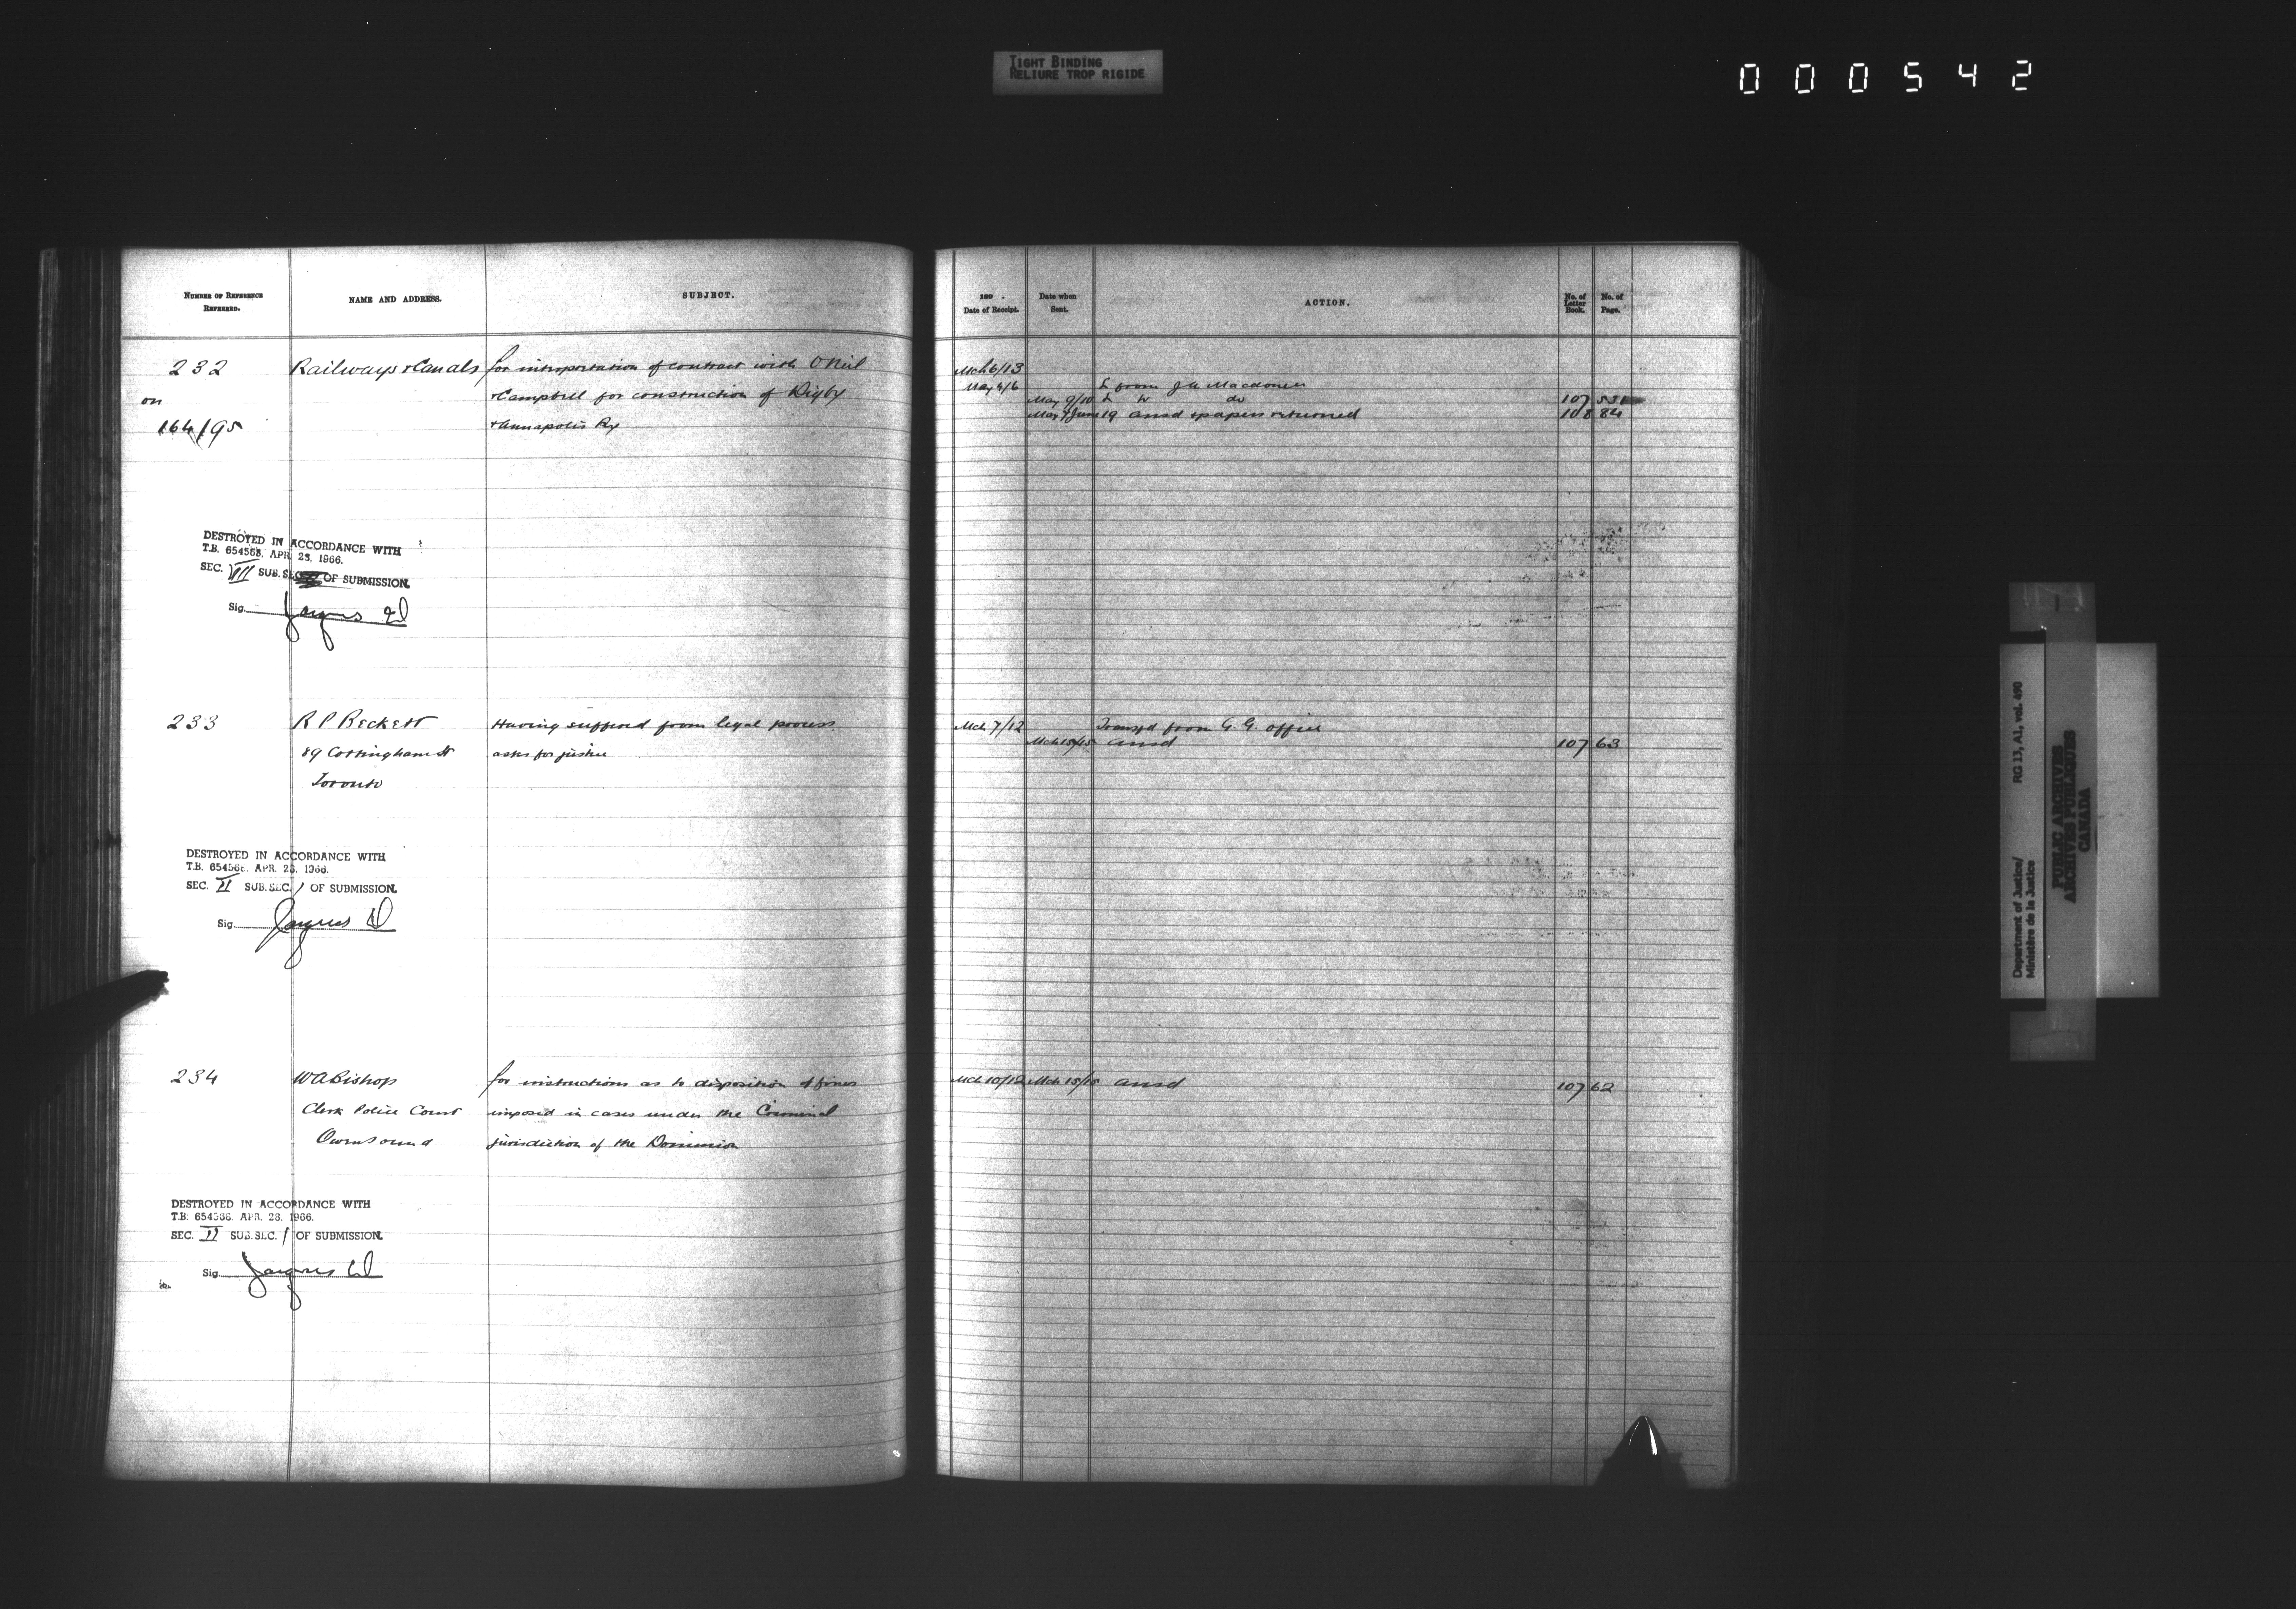 TIGHT BINDING
RELIURE TROP RIGIDE
000542
NUMBER OF REFERENCE REFERRED.
NAME AND ADDRESS.
SUBJECT.
189 .
Date of Receipt.
Date when Sent.
ACTION.
No. of Letter Book.
No. of Page.
232 Railways & Canals for interpretation of contract with O'Neil
on & Campbell for construction of Digby
164/95 & Annapolis Ry
Mch 6/13
May 4/6 L from J A Macdonell
May 9/10 L to do 107 531
June 19 ansd & papers returned 108 84
DESTROYED IN ACCORDANCE WITH
T.B. 654568, APR. 28, 1966.
SEC. VII SUB. SEC. OF SUBMISSION.
Sig.
233 R P Beckett Having suffered from legal process
89 Cottingham St asks for justice
Toronto
Mch 7/12 Transfd from G. G. office
Mch 15/15 ansd 107 63
DESTROYED IN ACCORDANCE WITH
T.B. 654568. APR. 28, 1966.
SEC. II SUB. SEC. 1 OF SUBMISSION.
Sig.
234 W A Bishop for instructions as to disposition of fines
Clerk Police Court imposed in cases under the Criminal
Owen Sound jurisdiction of the Dominion
Mch 10/12 Mch 15/15 ansd 107 62
DESTROYED IN ACCORDANCE WITH
T.B. 654568. APR. 28, 1966.
SEC. II SUB. SEC. 1 OF SUBMISSION.
Sig.
Department of Justice/ RG 13, A1, vol. 490
Ministère de la Justice
PUBLIC ARCHIVES
ARCHIVES PUBLIQUES
CANADA